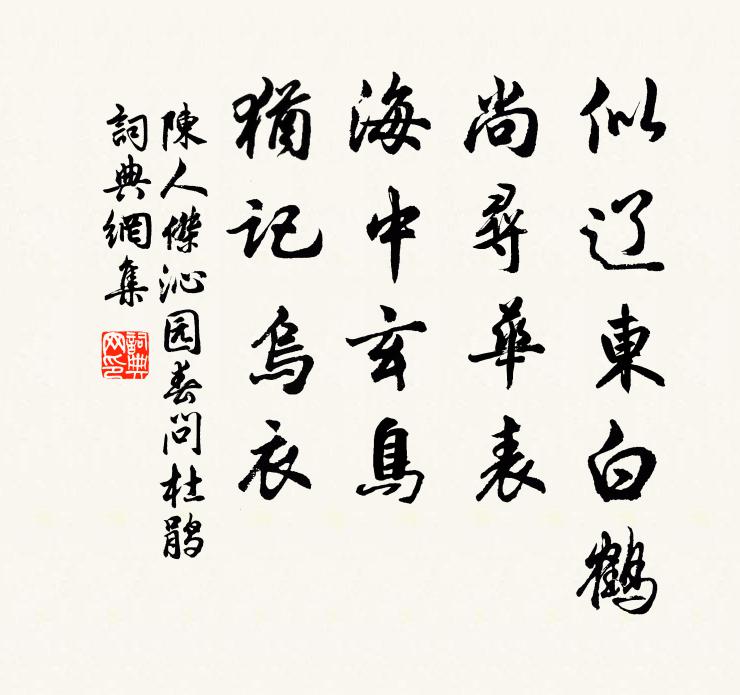 似辽東白鶴
尚尋華表
海中玄鳥
猶记烏衣
陳人傑沁园春问杜鹃
詞典網集
詞典网印